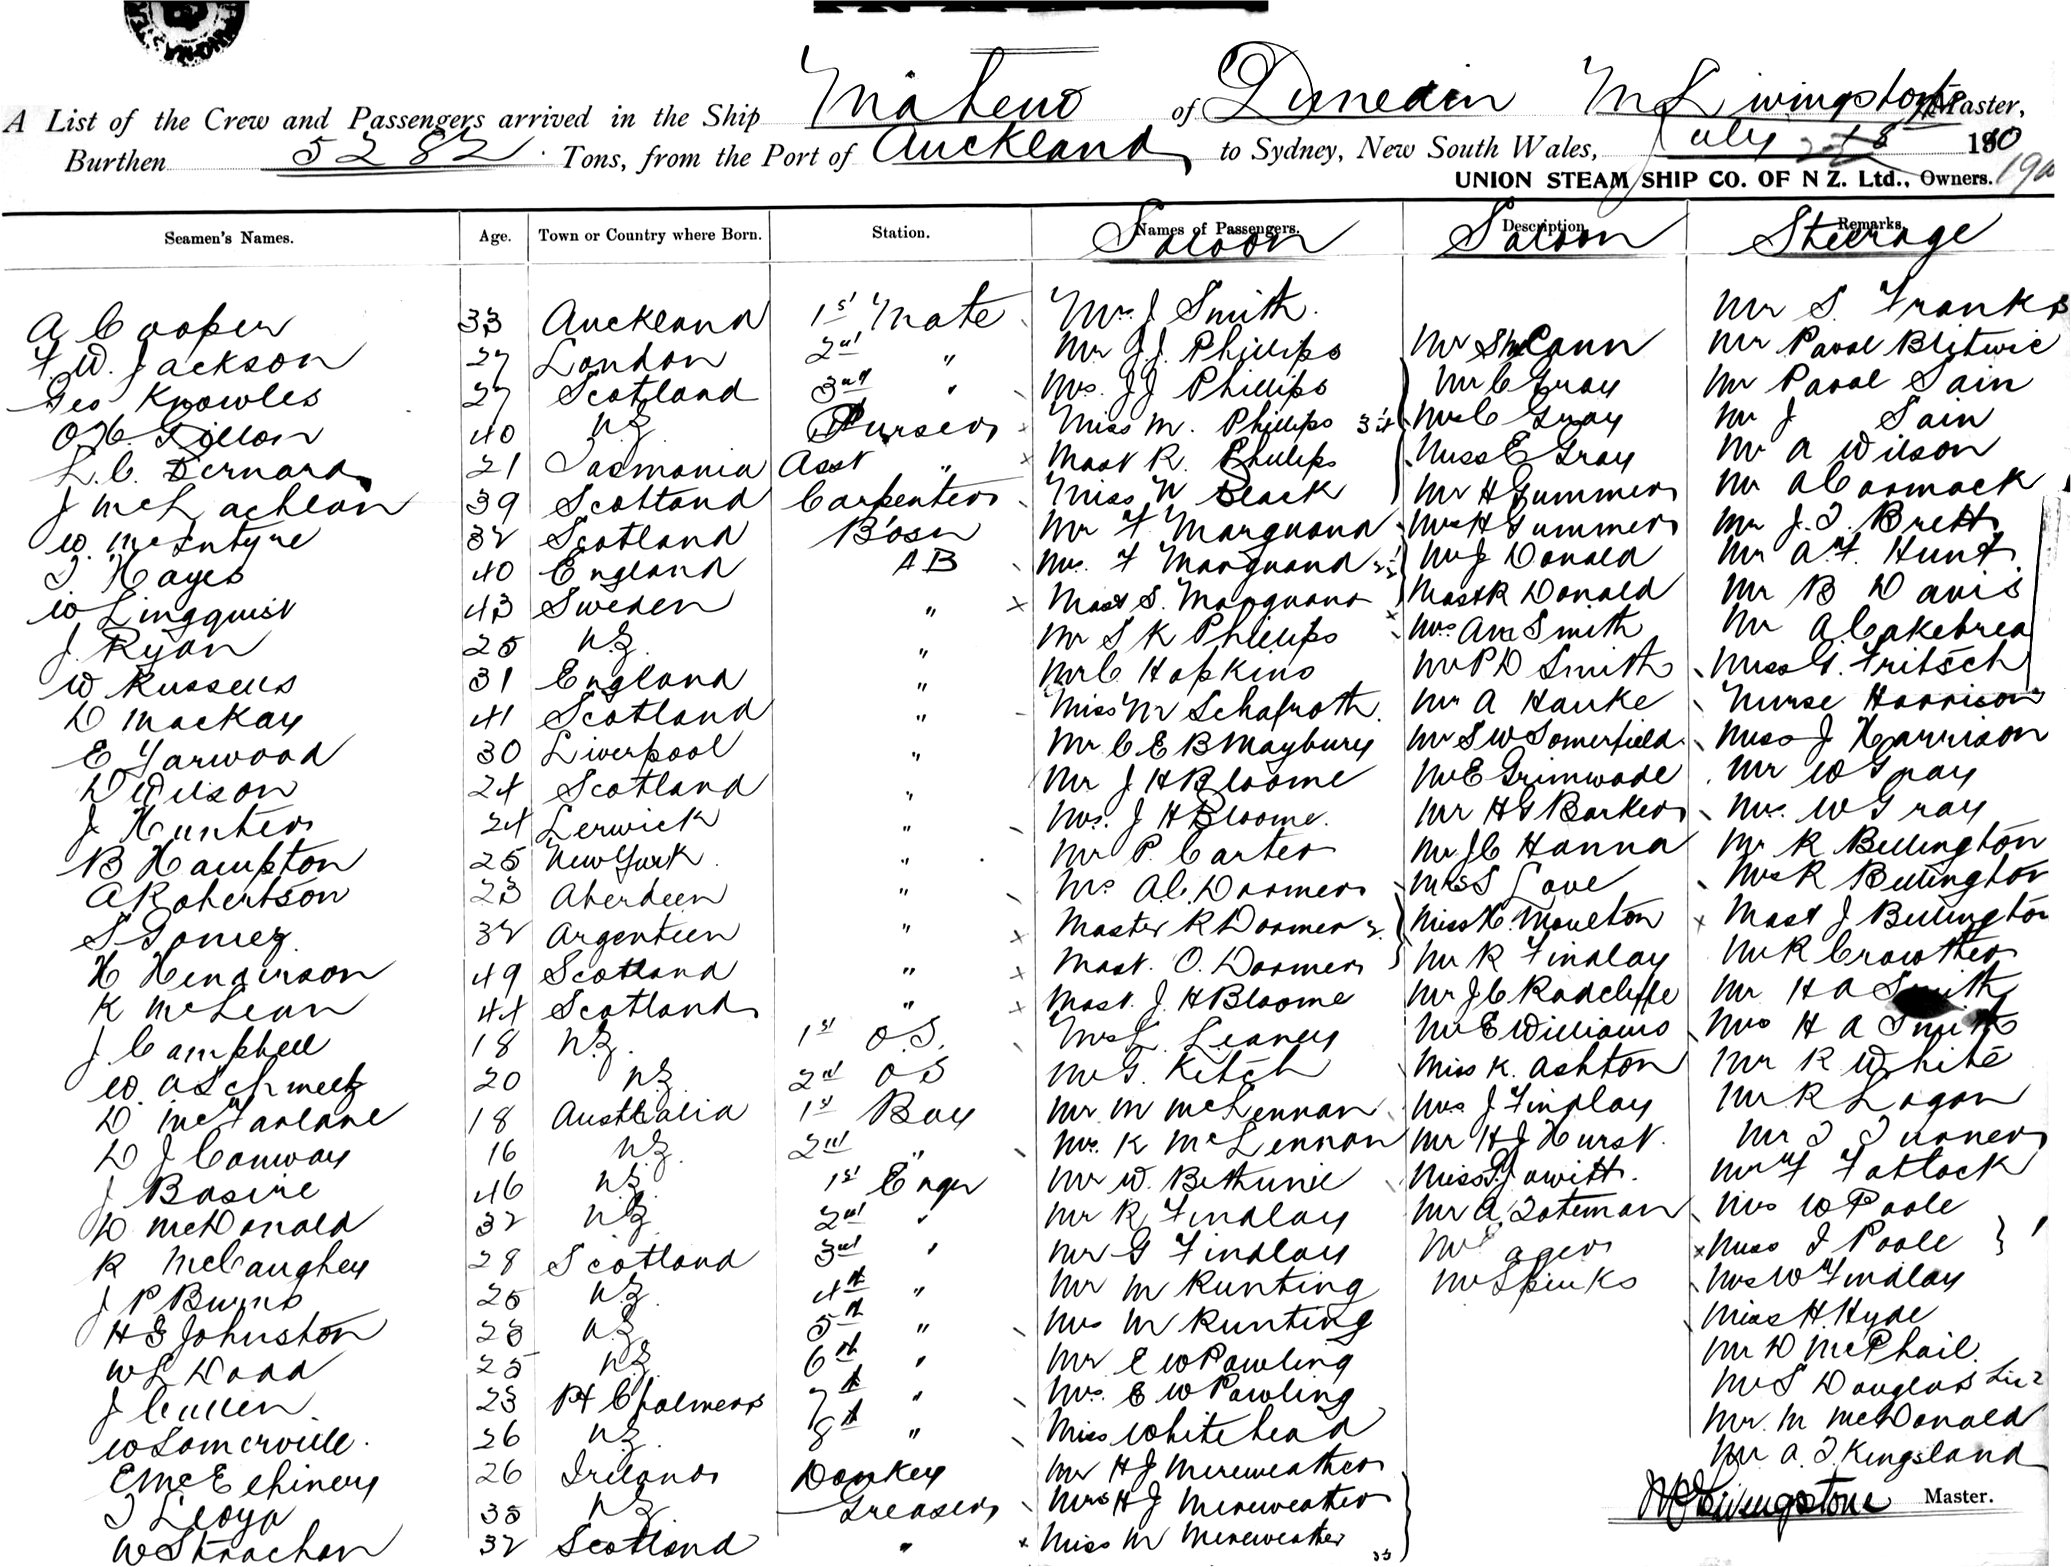 A List of the Crew and Passengers arrived in the Ship Maheno of Dunedin M Livingstone Master,
Burthen 5282 Tons, from the Port of Auckland to Sydney, New South Wales, July 190
UNION STEAM SHIP CO. OF N Z. Ltd., Owners.
Seamen's Names. Age. Town or Country where Born. Station. Names of Passengers. Saloon Description Saloon Remarks. Steerage
A Cooper 33 Auckland 1st Mate Mrs. J Smith. Mr S. Franks
F. W. Jackson 27 London 2nd " Mr J. J. Phillips Mr McCann Mr Paval
Geo Knowles 27 Scotland 3rd " Mrs. J J Phillips Mr C Gray Mr Paval Sain
Dillon 40 N.Z. Purser Miss M. Phillips Mrs C Gray Mr J Sain
L. C. Bernard 21 Tasmania Asst " Mast R. Phillips Miss E Gray Mr A Wilson
J McLachlan 39 Scotland Carpenter Miss N Black Mr H Gummer Mr A Cormack
W. McIntyre 32 Scotland Bosn Mr F Marquand Mrs H Gummer Mr J. T. Brett
T Hayes 40 England AB Mrs. F Marquand Mr J Donald Mr A. F. Hunt
W Lingquist 43 Sweden " Mast S. Marquand Mast R Donald Mr B Davis
J. Ryan 25 N.Z. " Mr S K Phillips Mrs Ann Smith Mr A Cakebread
W Russell 31 England " Mr C Hopkins Mr P D Smith Miss G. Fritsch
D Mackay 41 Scotland " Miss M Schafroth. Mr A Hanke Nurse Harrison
E Yarwood 30 Liverpool " Mr C E B Maybury Mr S W Somerfield Miss J Harrison
D Wilson 24 Scotland " Mr J H Bloome Mr E Grimwade Mr W Gray
J Hunter 24 Lerwick " Mrs. J H Bloome. Mr H G Barker Mrs. W Gray
B Hampton 25 New York. " Mr P. Carter Mr J C Hanna Mr R Billington
A Robertson 23 Aberdeen " Mrs A. C. Dormer S Love Mrs R Billington
S Gomez. 32 Argentien " Master R Dormer Miss H. Moulton Mast J Billington
H Henderson 49 Scotland " Mast. O. Dormer Mr R Findlay Mr R Crowther
K McLean 44 Scotland " Mast. J. H Bloome Mr J C Radcliffe Mr H A Smith
J Campbell 18 N.Z. 1st O.S. Mrs L. Leaney Mr E Williams Mrs H A Smith
W. A Schmeltz 20 N.Z. 2nd OS Mr G. Kitch Miss K. Ashton Mr R White
D McFarlane 18 Australia 1st Boy Mr M McLennan Mrs J Findlay Mr R Logan
D J Conway 16 N.Z. 2nd " Mrs. K McLennan Mr H J Hurst. Mr T Turner
J Basire 46 N.Z. 1st Engr Mr W. Bethune Miss Jowitt. Mr F Fatlock
D McDonald 32 N.Z. 2nd " Mr R Findlay Mr A. Toteman Mrs W Poole
R McCaughey 28 Scotland 3rd " Mr G Findlay Mr ager Miss I Poole
J P Burns 25 N.Z. 4th " Mr M Runting Mr Spinks Mrs W Findlay
H G Johnston 28 N.Z. 5th " Mrs M Runting Miss H. Hyde
W L Dodd 25 N.Z. 6th " Mr E W Pawling Mr D McPhail.
J Cullen. 23 Pt Chalmers 7th " Mrs. E W Pawling Mr S Douglas
W Somerville. 26 N.Z. 8th " Miss Whitehead Mr. M McDonald
E McElhiney 26 Ireland Donkey Mr H J Mereweather Mr A. T. Kingsland
T Lloyd 35 N.Z. Greaser Mrs H J Mereweather M Livingstone Master.
W Strachan 32 Scotland " Miss M Mereweather